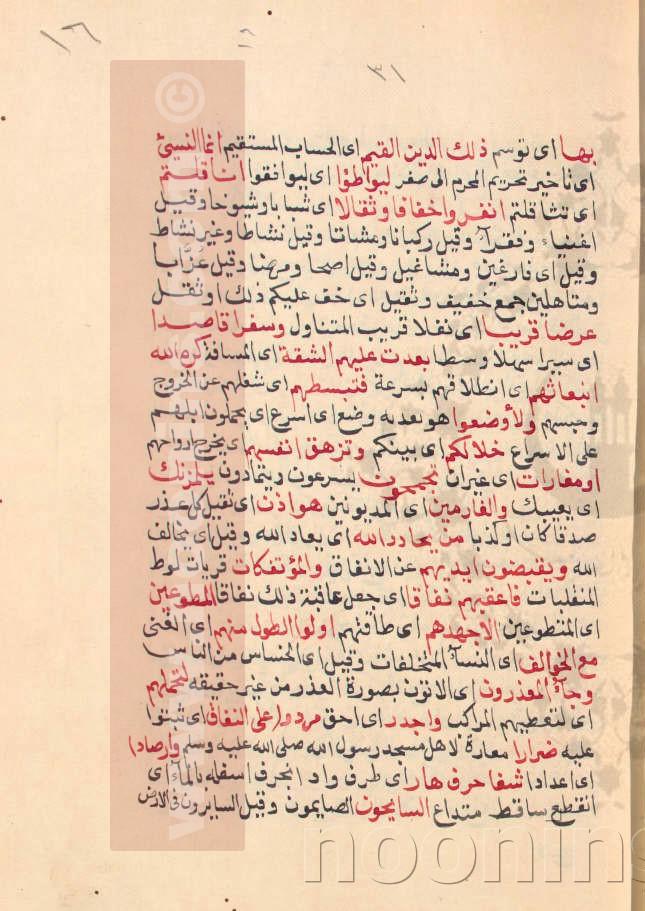 ١٦
١٨
٣١
بها اى توسم ذلك الدين القيم اى الحساب المستقيم انما النسئ
اى تاخير تحريم المحرم الى صفر ليواطؤا اى ليوافقوا اثاقلتم
اى تثاقلتم انفروا خفافا وثقالا اى شبابا وشيوخا وقيل
اغنياء وفقرآ وقيل ركبانا ومشاتا وقيل نشاطا وغير نشاط
وقيل اى فارغين ومشاغيل وقيل اصحا ومرضا وقيل عزّابا
ومتاهلين جمع خفيف وثقيل اى خف عليكم ذلك او ثقل
عرضا قريبا اى نفلا قريب المتناول وسفرا قاصدا
اى سيرا سهلا وسطا بعدت عليهم الشقة اى المسافة كره الله
انبعاثهم اى انطلاقهم بسرعة فثبسطهم اى شغلهم عن الخروج
وحبسهم ولأوضعوا هو تعديه وضع اى اسرع اى يحملون ابلهم
على الاسراع خلالكم اى بينكم وتزهق انفسهم اى يخرج ارواحهم
او مغارات اى غيران يجمحون يسرعون ويتمادون يلمزنك
اى يعيبك والغارمين اى المديونين هو اذن اى تقبل كل عذر
صدقا كان او كذبا من يحادد الله اى يعاد الله وقيل اى يخالف
الله ويقبضون ايديهم عن الانفاق والمؤتفكات قريات لوط
المنقلبات فاعقبهم نفاقا اى جعل عاقبة ذلك نفاقا المطوعين
اى المتطوعين الا جهدهم اى طاقتهم اولوا الطول منهم اى الغنى
مع الخوالف اى النسآء المتخلفات وقيل اى الخساس من الناس
وجآء المعذرون اى الاتون بصورة العذر من غير حقيقه لتحملهم
اى لتعطيهم المراكب واجدر اى احق مردوا على النفاق اى ثبتوا
عليه ضرارا معارة لاهل مسجد رسول الله صلى الله عليه وسلم وارصادا
اى اعدادا شفا جرف هار اى طرف واد انجرف اسفله بالمآء اى
انقطع ساقط متداع السايحون الصايمون وقيل السايرون فى الارض
©
noonins